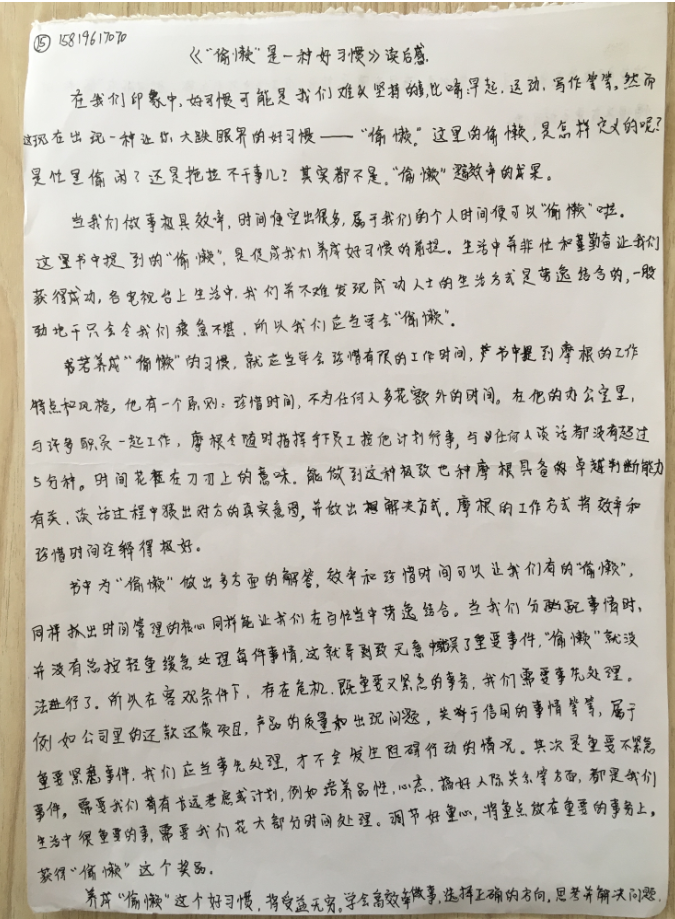 ⑮ 15819617070
《“偷懒”是一种好习惯》读后感.
在我们印象中,好习惯可能是我们难以坚持的事,比喻:早起,运动,写作等等。然而
这现在出现一种让你大跌眼界的好习惯——“偷懒”。这里的偷懒,是怎样定义的呢?
是忙里偷闲?还是拖拉不干事儿?其实都不是,“偷懒”是效率的成果。
当我们做事极具效率,时间便空出很多,属于我们的个人时间便可以“偷懒”啦。
这里书中提到的“偷懒”,是促成我们养成好习惯的前提。生活中并非忙和勤奋让我们
获得成功,各电视台上生活中,我们并不难发现成功人士的生活方式是劳逸结合的,一股
劲地干只会令我们疲惫不堪,所以我们应当学会“偷懒”。
若养成“偷懒”的习惯,就应当学会珍惜有限的工作时间,书中提到摩根的工作
特点和风格,他有一个原则:珍惜时间,不为任何人多花额外的时间。在他的办公室里,
与许多职员一起工作,摩根会随时指挥手下员工按他计划行事,与任何人谈话都没有超过
5分种。时间花在刀刃上的意味,能做到这种极致也种摩根具备的卓越判断能力
有关,谈话过程中猜出对方的真实意图,并做出解决方式。摩根的工作方式将效率和
珍惜时间诠释得极好。
书中为“偷懒”做出多方面的解答,效率和珍惜时间可以让我们有的“偷懒”,
同样抓出时间管理的核心同样能让我们在百忙当中劳逸结合。当我们分配事情时,
并没有总按轻重缓急处理每件事情,这就导致无意中耽误了重要事件,“偷懒”就没
法进行了。所以在客观条件下,存在危机,既重要又紧急的事务,我们需要事先处理。
例如公司里的还款还货项目,产品的质量和出现问题,关于信用的事情等等,属于
重要紧急事件,我们应当事先处理,才不会发生阻碍行动的情况。其次是重要不紧急
事件,需要我们有长远考虑或计划,例如培养品性,心态,搞好人际关系等方面,都是我们
生活中很重要的事,需要我们花大部分时间处理。调节好重心,将重点放在重要的事务上,
获得“偷懒”这个奖品。
养成“偷懒”这个好习惯,将受益无穷。学会高效率做事,选择正确的方向,思考并解决问题,